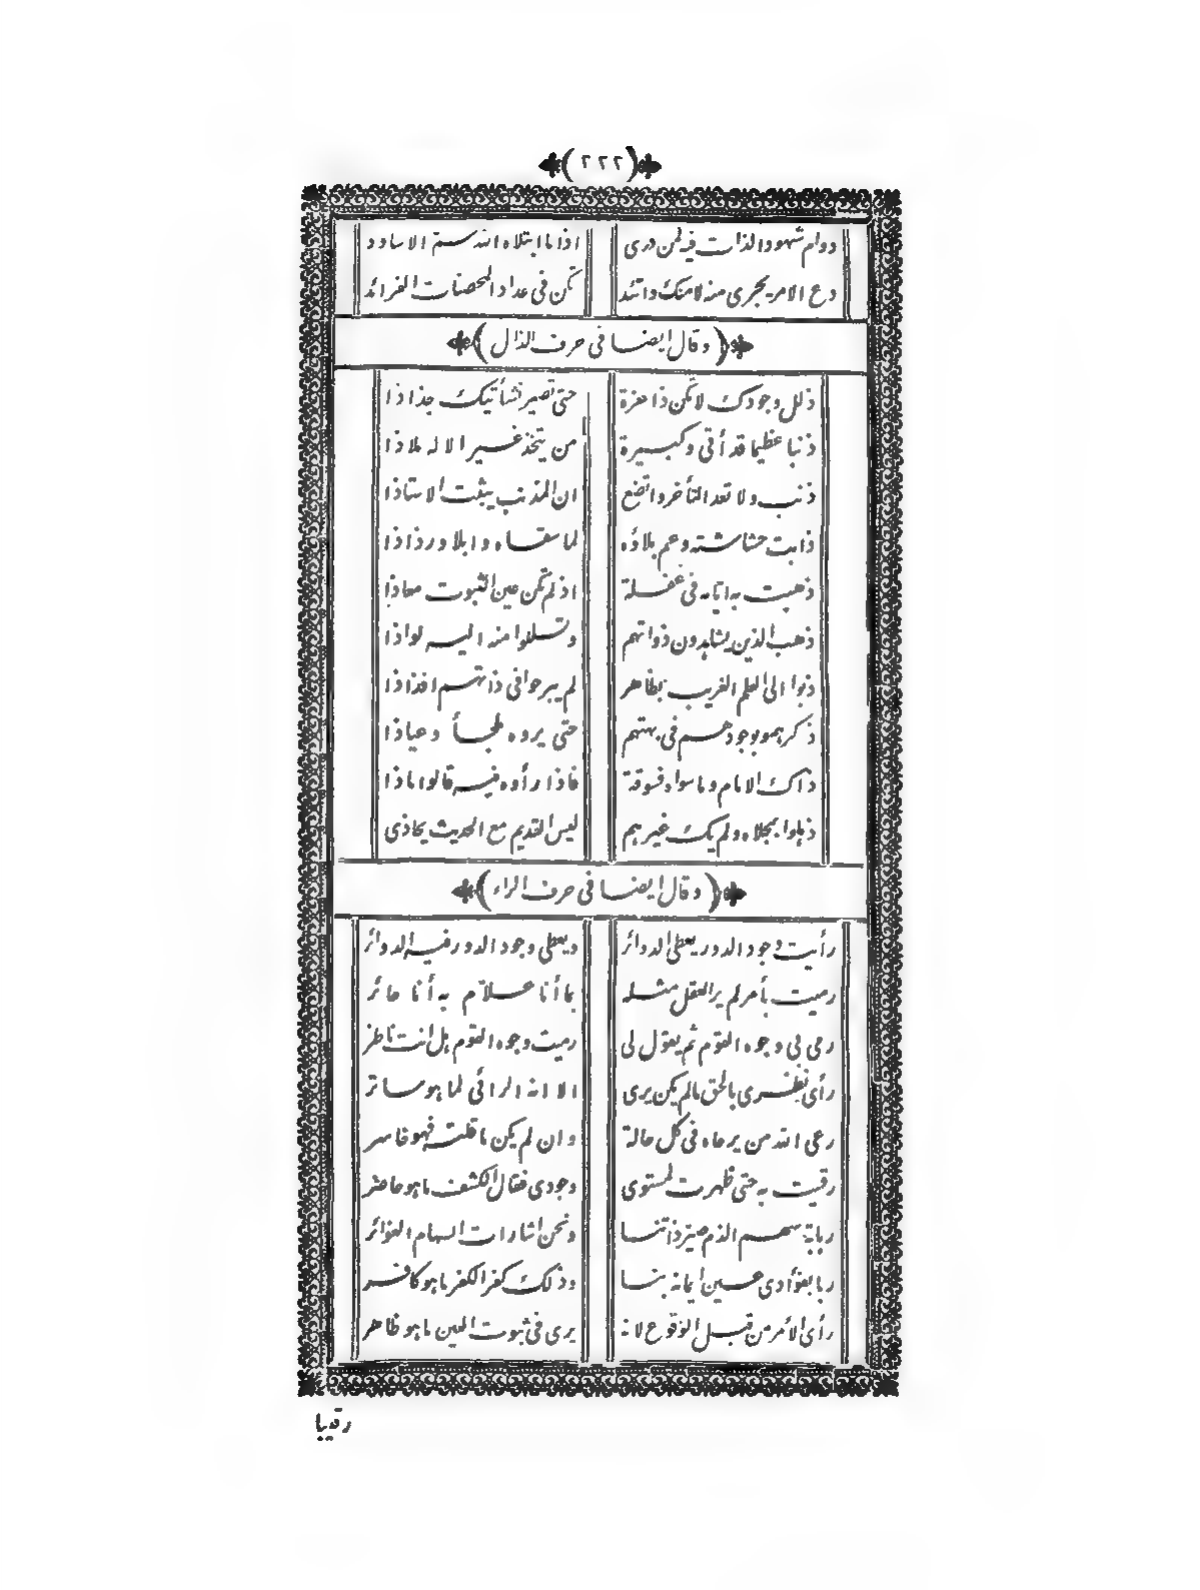 (٢٢٢)
دوام شهود الذات فيه لمن درى اذا ما ابتلاه الله سم الاساود
دع الامر يجرى منه لا منك واتئد تكن فى عداد المحصنات الفرائد
(وقال ايضا فى حرف الذال)
ذلل وجودك لا تكن ذا عزة حتى تصير نشأتيك جذاذا
ذنبا عظيما قد أتى وكبيرة من يتخذ غير الاله ملاذا
ذنب ولا تعد التأخر واتضع ان المذنب يثبت الاستاذا
ذابت حشاشته وعم بلاؤه لما سقاه وابلا ورذاذا
ذهبت به ايامه فى غفلة اذ لم تكن عين الثبوت معاذا
ذهب الذين يشاهدون ذواتهم وتسللوا منه اليه لواذا
ذبوا الى العلم الغريب بظاهر لم يبرحوا فى ذاتهم افذاذا
ذكرهمو بوجودهم فى بهتهم حتى يروه ملجأ وعياذا
ذاك الامام وما سواه فسوقة فاذا رأوه فيه قالوا ماذا
ذهلوا بمجلاه ولم يك غيرهم ليس القديم مع الحديث يحاذى
(وقال ايضا فى حرف الراء)
رأيت وجود الدور يعطى الدوائر ويعطى وجود الدور فيه الدوائر
رميت بأمر لم ير العقل مثله بما أنا علام به أنا حائر
رمى بى وجوه القوم ثم يقول لى رميت وجوه القوم بل انت ناظر
رأى نظرى بالحق ما لم يكن يرى الا انه الرائى لما هو ساتر
رعى الله من يرعاه فى كل حالة وان لم يكن ما قلته فهو خاسر
رقيت به حتى ظهرت لمستوى وجودى فقال الكشف ما هو حاضر
رباية سهم الذم صيرذاتنا ونحن اشارات السهام الغوائر
ربا بفؤادى عين ايمانه بنا وذلك كفر الكفر ما هو كافر
رأى الأمر من قبل الوقوع لانه يرى فى ثبوت العين ما هو ظاهر
رقيبا